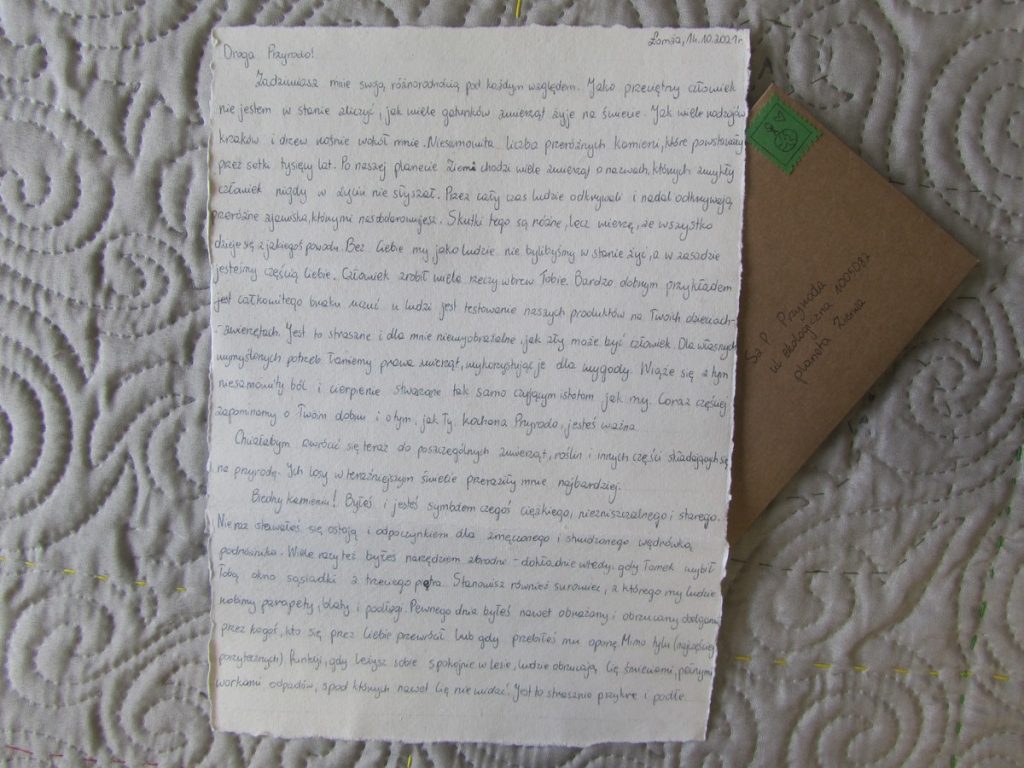 Łomża, 14.10.2021r
Droga Przyrodo!
Zadziwiasz mnie swoją różnorodnością pod każdym względem. Jako przeciętny człowiek
nie jestem w stanie zliczyć, jak wiele gatunków zwierząt żyje na świecie. Jak wiele rodzajów
krzaków i drzew rośnie wokół mnie. Niesamowita liczba przeróżnych kamieni, które powstawały
przez setki tysięcy lat. Po naszej planecie Ziemi chodzi wiele zwierząt o nazwach, których zwykły
człowiek nigdy w życiu nie słyszał. Przez cały czas ludzie odkrywali i nadal odkrywają
przeróżne zjawiska, którymi nas obdarowujesz. Skutki tego są różne, lecz wierzę, że wszystko
dzieje się z jakiegoś powodu. Bez Ciebie my jako ludzie nie bylibyśmy w stanie żyć, a w zasadzie
jesteśmy częścią Ciebie. Człowiek zrobił wiele rzeczy wbrew Tobie. Bardzo dobrym przykładem
jest całkowitego braku uczuć u ludzi jest testowanie naszych produktów na Twoich dzieciach-
-zwierzętach. Jest to straszne i dla mnie niewyobrażalne, jak zły może być człowiek. Dla własnych
wymyślonych potrzeb łamiemy prawa zwierząt, wykorzystując je dla wygody. Wiąże się z tym
niesamowity ból i cierpienie stwarzane tak samo czującym istotom jak my. Coraz częściej
zapominamy o Twoim dobru i o tym, jak Ty, kochana Przyrodo, jesteś ważna.
Chciałabym zwrócić się teraz do poszczególnych zwierząt, roślin i innych części składających się
na przyrodę. Ich losy w teraźniejszym świecie przeraziły mnie najbardziej.
Biedny kamieniu! Byłeś i jesteś symbolem czegoś ciężkiego, niezniszczalnego i starego.
Nie raz stawałeś się ostoją i odpoczynkiem dla zmęczonego i strudzonego wędrówką
podróżnika. Wiele razy też byłeś narzędziem zbrodni - dokładnie wtedy, gdy Tomek wybił
Tobą okno sąsiadki z trzeciego piętra. Stanowisz również surowiec, z którego my ludzie
robimy parapety, blaty i podłogi. Pewnego dnia byłeś nawet obrażany i obrzucany obelgami
przez kogoś, kto się przez Ciebie przewrócił lub gdy przebiłeś mu oponę. Mimo tylu (najczęściej
pozytecznych) funkcji, gdy leżysz sobie spokojnie w lesie, ludzie obrzucają Cię śmieciami, pełnymi
workami odpadów, spod których nawet Cię nie widać. Jest to strasznie przykre i podłe.
Sz. P. Przyroda
ul. ekologiczna
planeta Ziemia